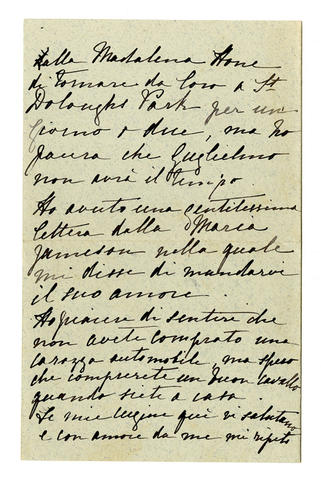 dalla Maddalena Hone
di tornare da loro a St
Doloughs Park per un
giorno o due, ma ho
paura che Guglielmo
non avrà il tempo
Ho avuto una gentilissima
lettera dalla Maria
Jameson nella quale
mi disse di mandarvi
il suo amore.
Ho piacere di sentire che
non avete comprato una
carozza automobile, ma spero
che comprerete un buon cavallo
quando siete a casa.
Le mie cugine quì vi salutano
e con amore da me mi ripeto